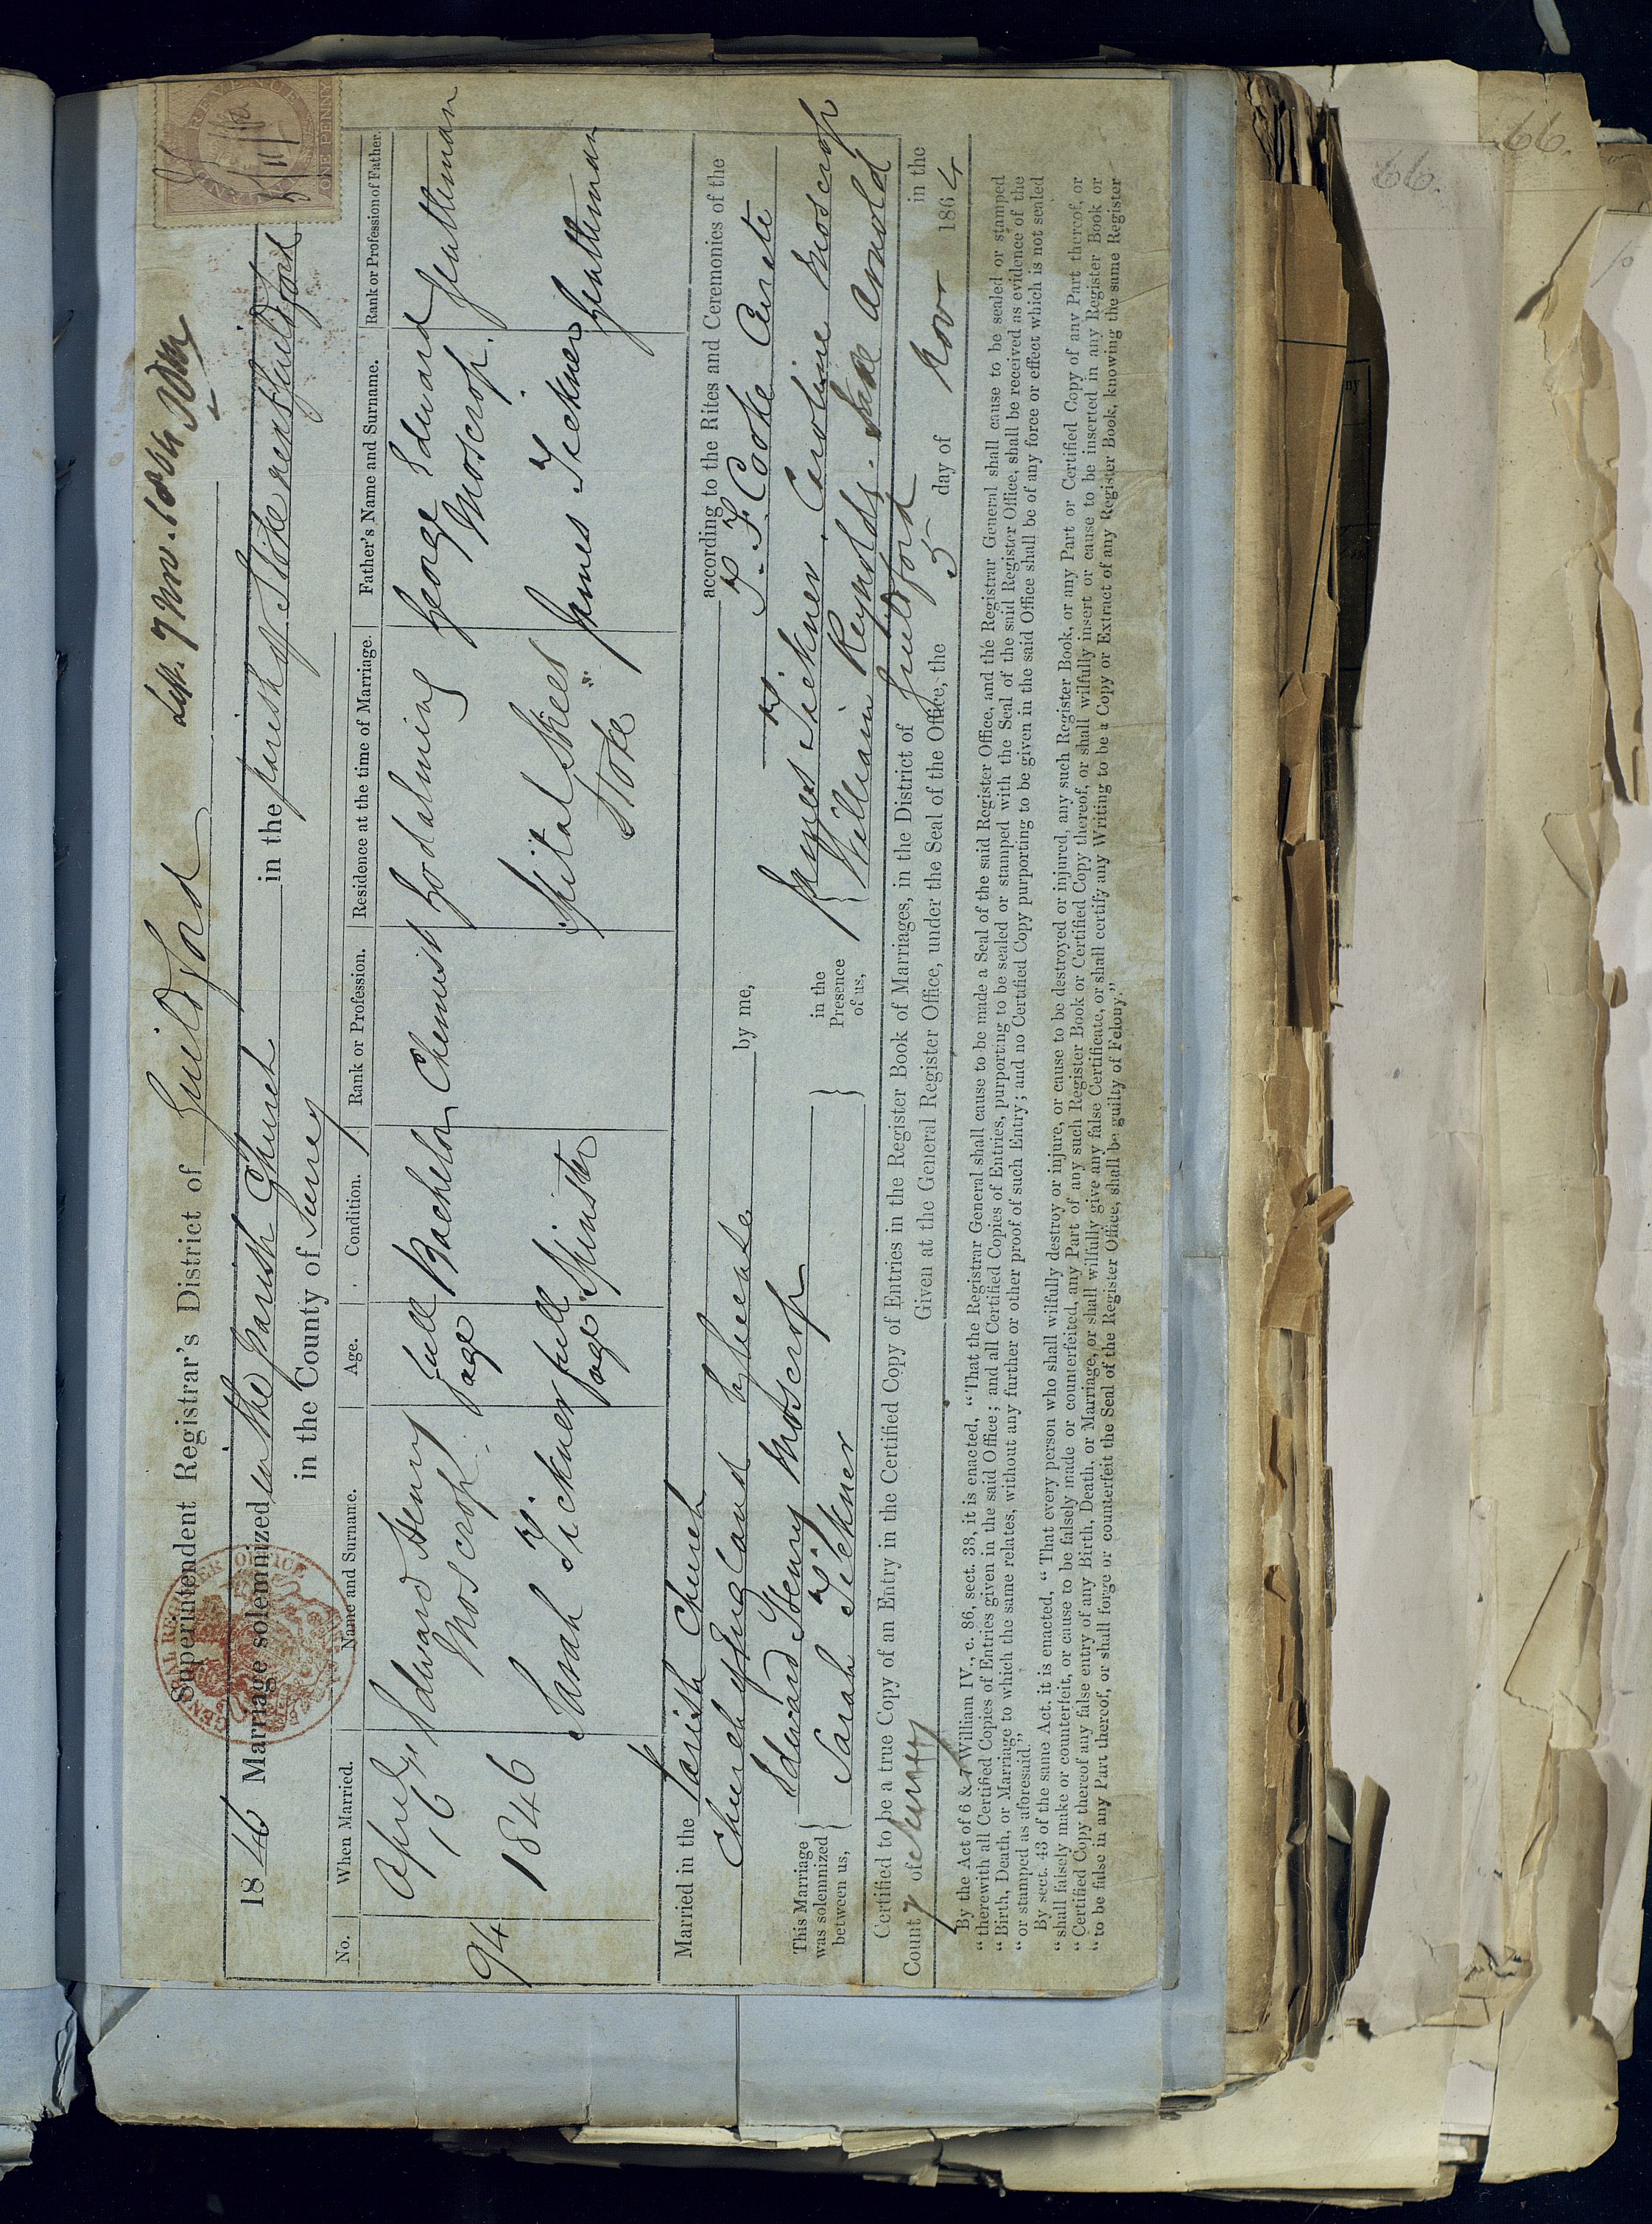 Superintendent Registrar's District of Guildford
1846 Marriage solemnized in the Parish Church in the parish of Stoke next Guildford
in the County of Surrey
No. When Married. Name and Surname. Age. Condition. Rank or Profession. Residence at the time of Marriage. Father's Name and Surname. Rank or Profession of Father.
94 April 16 1846 Edward Henry Moscrop Full age Bachelor Chemist Godalming George Edward Moscrop Gentleman
Sarah Tickner full age Spinster Spital Street Stoke James Tickner Gentleman
Married in the Parish Church according to the Rites and Ceremonies of the
Church of England by license by me, Cooke Curate
This Marriage was solemnized between us, Edward Henry Moscrop
Sarah Tickner
in the Presence of us, James Tickner Caroline Moscrop
William Reynolds Arnold
Certified to be a true Copy of an Entry in the Certified Copy of Entries in the Register Book of Marriages, in the District of Guildford in the
County of Surrey Given at the General Register Office, under the Seal of the Office, the 5 day of Novr 1864
By the Act of 6 & 7 William IV., c. 86, sect. 38, it is enacted, "That the Registrar General shall cause to be made a Seal of the said Register Office, and the Registrar General shall cause to be sealed or stamped
"therewith all Certified Copies of Entries given in the said Office; and all Certified Copies of Entries, purporting to be sealed or stamped with the Seal of the said Register Office, shall be received as evidence of the
"Birth, Death, or Marriage to which the same relates, without any further or other proof of such Entry; and no Certified Copy purporting to be given in the said Office shall be of any force or effect which is not sealed
"or stamped as aforesaid."
By sect. 43 of the same Act, it is enacted, "That every person who shall wilfully destroy or injure, or cause to be destroyed or injured, any such Register Book, or any Part or Certified Copy of any Part thereof, or
"shall falsely make or counterfeit, or cause to be falsely made or counterfeited, any Part of any such Register Book or Certified Copy thereof, or shall wilfully insert or cause to be inserted in any Register Book or
"Certified Copy thereof any false entry of any Birth, Death, or Marriage, or shall wilfully give any false Certificate, or shall certify any Writing to be a Copy or Extract of any Register Book, knowing the same Register
"to be false in any Part thereof, or shall forge or counterfeit the Seal of the Register Office, shall be guilty of Felony."
GENERAL REGISTER OFFICE
INLAND REVENUE
ONE PENNY
66.
66.